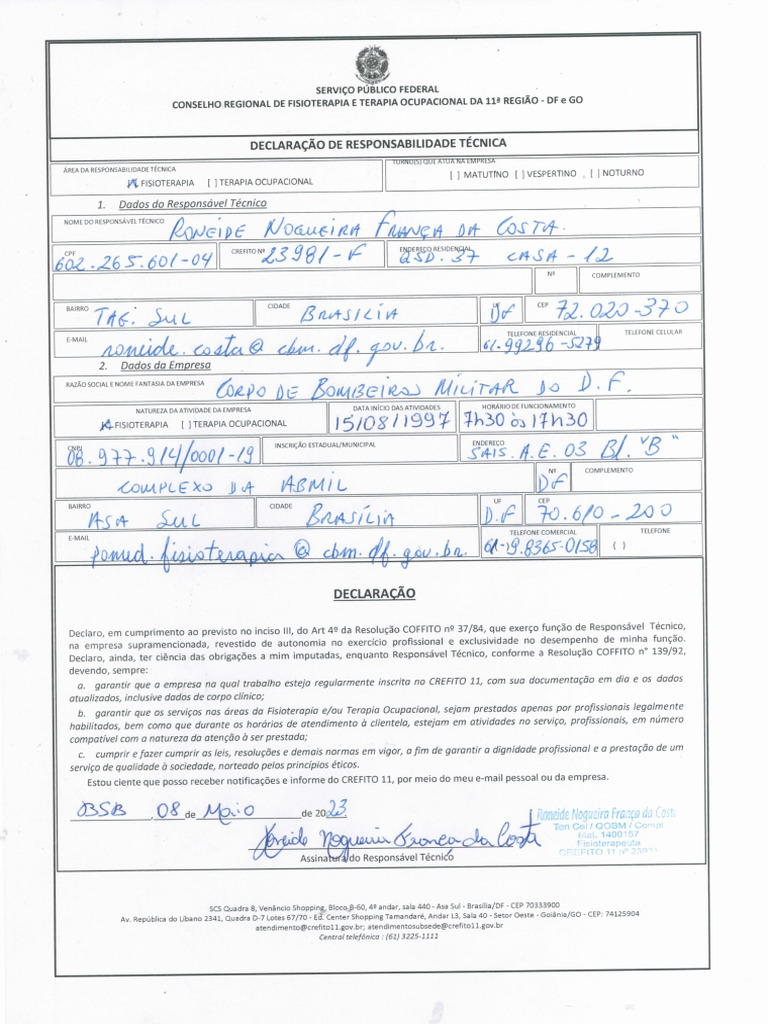 SERVIÇO PÚBLICO FEDERAL
CONSELHO REGIONAL DE FISIOTERAPIA E TERAPIA OCUPACIONAL DA 11ª REGIÃO - DF e GO
DECLARAÇÃO DE RESPONSABILIDADE TÉCNICA
ÁREA DA RESPONSABILIDADE TÉCNICA
[X] FISIOTERAPIA [ ] TERAPIA OCUPACIONAL
TURNO(S) QUE ATUA NA EMPRESA
[ ] MATUTINO [ ] VESPERTINO , [ ] NOTURNO
1. Dados do Responsável Técnico
NOME DO RESPONSÁVEL TÉCNICO RONEIDE NOGUEIRA FRANÇA DA COSTA.
CPF 602.265.601-04 CREFITO Nº 23981-F ENDEREÇO RESIDENCIAL QSD. 37 CASA - 12
Nº COMPLEMENTO
BAIRRO TAG. SUL CIDADE BRASILIA UF DF CEP 72.020-370
E-MAIL roneide.costa@cbm.df.gov.br. TELEFONE RESIDENCIAL 61.99296-5279 TELEFONE CELULAR
2. Dados da Empresa
RAZÃO SOCIAL E NOME FANTASIA DA EMPRESA CORPO DE BOMBEIROS MILITAR DO D.F.
NATUREZA DA ATIVIDADE DA EMPRESA
[X] FISIOTERAPIA [ ] TERAPIA OCUPACIONAL
DATA INÍCIO DAS ATIVIDADES 15/08/1997
HORÁRIO DE FUNCIONAMENTO 7h30 às 17h30
CNPJ 08.977.914/0001-19 INSCRIÇÃO ESTADUAL/MUNICIPAL ENDEREÇO SAIS. A.E. 03 Bl. "B"
COMPLEXO DA ABMIL Nº DF COMPLEMENTO
BAIRRO ASA SUL CIDADE BRASÍLIA UF D.F CEP 70.610-200
E-MAIL pomed.fisioterapia@cbm.df.gov.br. TELEFONE COMERCIAL 61-9.8365-0158 TELEFONE ( )
DECLARAÇÃO
Declaro, em cumprimento ao previsto no inciso III, do Art 4º da Resolução COFFITO nº 37/84, que exerço função de Responsável Técnico,
na empresa supramencionada, revestido de autonomia no exercício profissional e exclusividade no desempenho de minha função.
Declaro, ainda, ter ciência das obrigações a mim imputadas, enquanto Responsável Técnico, conforme a Resolução COFFITO n° 139/92,
devendo, sempre:
a. garantir que a empresa na qual trabalho esteja regularmente inscrita no CREFITO 11, com sua documentação em dia e os dados
atualizados, inclusive dados de corpo clínico;
b. garantir que os serviços nas áreas da Fisioterapia e/ou Terapia Ocupacional, sejam prestados apenas por profissionais legalmente
habilitados, bem como que durante os horários de atendimento à clientela, estejam em atividades no serviço, profissionais, em número
compatível com a natureza da atenção à ser prestada;
c. cumprir e fazer cumprir as leis, resoluções e demais normas em vigor, a fim de garantir a dignidade profissional e a prestação de um
serviço de qualidade à sociedade, norteado pelos princípios éticos.
Estou ciente que posso receber notificações e informe do CREFITO 11, por meio do meu e-mail pessoal ou da empresa.
BSB , 08 de Maio de 2023
Roneide Nogueira França da Costa
Assinatura do Responsável Técnico
Roneide Nogueira França da Costa
Ten Cel / QOBM / Compl
Mat. 1400157
Fisioterapeuta
CREFITO 11 nº 23981
SCS Quadra 8, Venâncio Shopping, Bloco B-60, 4º andar, sala 440 - Asa Sul - Brasília/DF - CEP 70333900
Av. República do Líbano 2341, Quadra D-7 Lotes 67/70 - Ed. Center Shopping Tamandaré, Andar L3, Sala 40 - Setor Oeste - Goiânia/GO - CEP: 74125904
atendimento@crefito11.gov.br; atendimentosubsede@crefito11.gov.br
Central telefônica : (61) 3225-1111